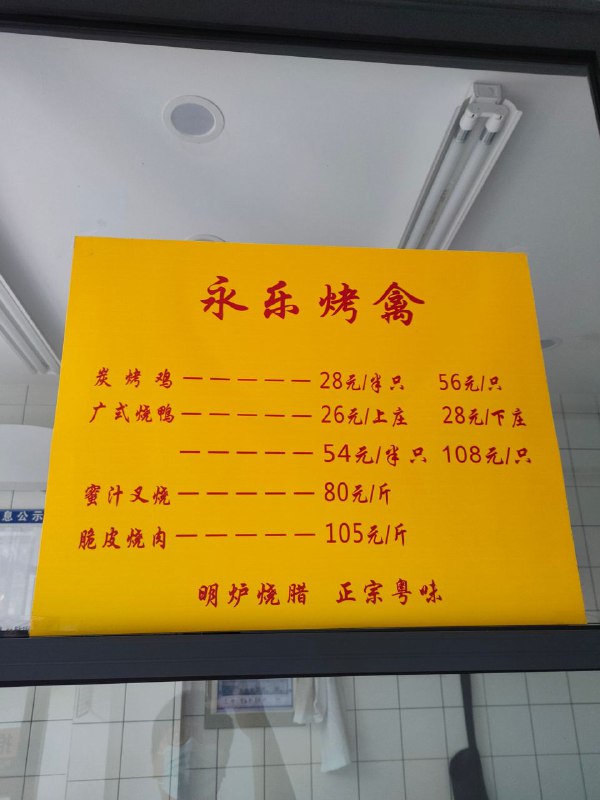 永乐烤禽
炭烤鸡－－－－－－28元/半只 56元/只
广式烧鸭－－－－－26元/上庄 28元/下庄
－－－－－54元/半只 108元/只
蜜汁叉烧－－－－－80元/斤
脆皮烧肉－－－－－105元/斤
明炉烧腊 正宗粤味
息公示